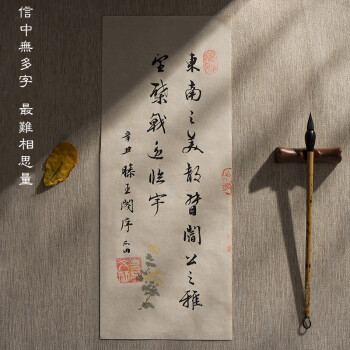 信中無多字 最難相思量
東南之美都督閻公之雅
望棨戟遥临宇
辛丑 滕王閣序